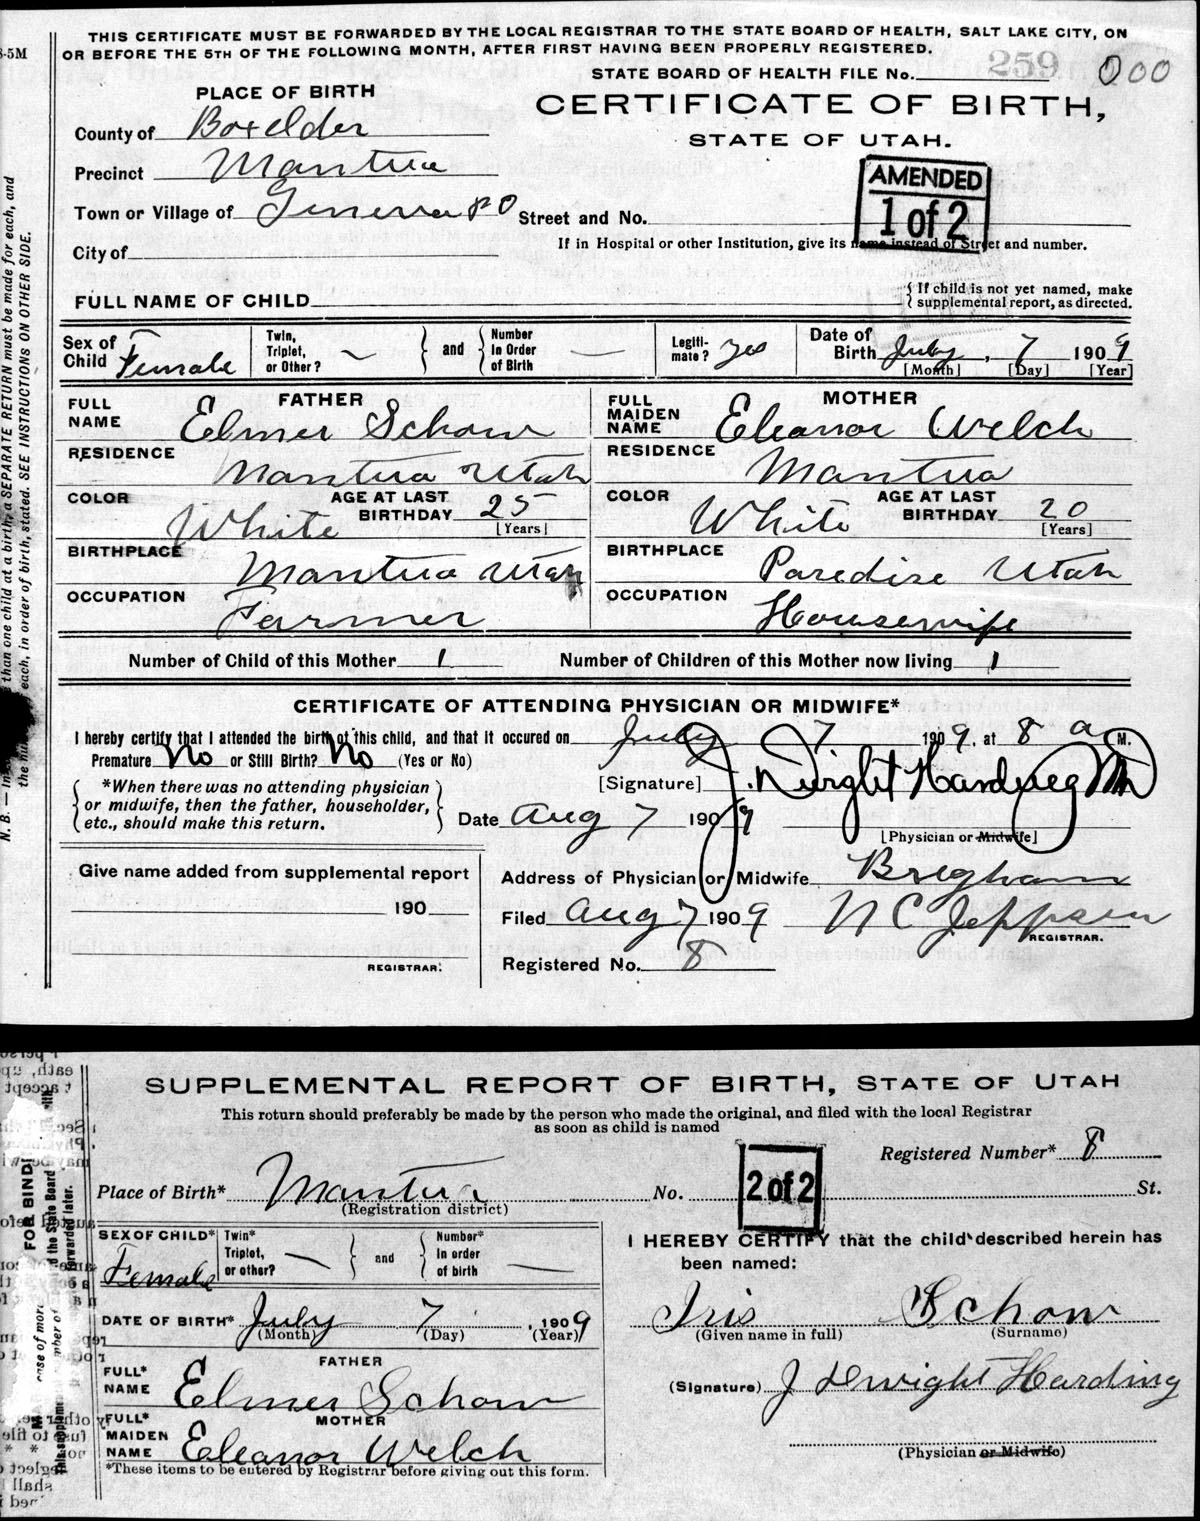 THIS CERTIFICATE MUST BE FORWARDED BY THE LOCAL REGISTRAR TO THE STATE BOARD OF HEALTH, SALT LAKE CITY, ON
OR BEFORE THE 5TH OF THE FOLLOWING MONTH, AFTER FIRST HAVING BEEN PROPERLY REGISTERED.
-5M
STATE BOARD OF HEALTH FILE No. 259 000
PLACE OF BIRTH
CERTIFICATE OF BIRTH,
STATE OF UTAH.
County of Boxelder
Precinct Mantua
AMENDED
1 of 2
Town or Village of Geneva P O Street and No.
If in Hospital or other Institution, give its name instead of Street and number.
City of
FULL NAME OF CHILD
{ If child is not yet named, make
supplemental report, as directed.
Sex of Child Female
Twin, Triplet, or Other? — } and { Number In Order of Birth —
Legiti-mate? yes
Date of Birth July, 7 1909
[Month] [Day] [Year]
FATHER
FULL NAME Elmer Schow
RESIDENCE Mantua Utah
COLOR White AGE AT LAST BIRTHDAY 25 [Years]
BIRTHPLACE Mantua Utah
OCCUPATION Farmer
MOTHER
FULL MAIDEN NAME Eleanor Welch
RESIDENCE Mantua
COLOR White AGE AT LAST BIRTHDAY 20 [Years]
BIRTHPLACE Paredise Utah
OCCUPATION Housewife
Number of Child of this Mother 1 Number of Children of this Mother now living 1
CERTIFICATE OF ATTENDING PHYSICIAN OR MIDWIFE*
I hereby certify that I attended the birth of this child, and that it occured on July 7 1909, at 8 a M.
Premature No or Still Birth? No (Yes or No)
[Signature] J. Dwight Harding MD
{ *When there was no attending physician
or midwife, then the father, householder,
etc., should make this return. }
Date Aug 7 1909
[Physician or Midwife]
Give name added from supplemental report
190
REGISTRAR.
Address of Physician or Midwife Brigham
Filed Aug 7 1909 N C Jeppsen
REGISTRAR.
Registered No. 8
than one child at a birth, a SEPARATE RETURN must be made for each, and
each, in order of birth, stated. SEE INSTRUCTIONS ON OTHER SIDE.
SUPPLEMENTAL REPORT OF BIRTH, STATE OF UTAH
This return should preferably be made by the person who made the original, and filed with the local Registrar
as soon as child is named
Registered Number* 8
2 of 2
Place of Birth* Mantua No. St.
(Registration district)
SEX OF CHILD* Female
Twin* Triplet, or other? — } and { Number* In order of birth —
DATE OF BIRTH* July 7, 1909
(Month) (Day) (Year)
FATHER
FULL* NAME Elmer Schow
MOTHER
FULL* MAIDEN NAME Eleanor Welch
*These items to be entered by Registrar before giving out this form.
I HEREBY CERTIFY that the child described herein has
been named:
Iris Schow
(Given name in full) (Surname)
(Signature) J Dwight Harding
(Physician or Midwife)